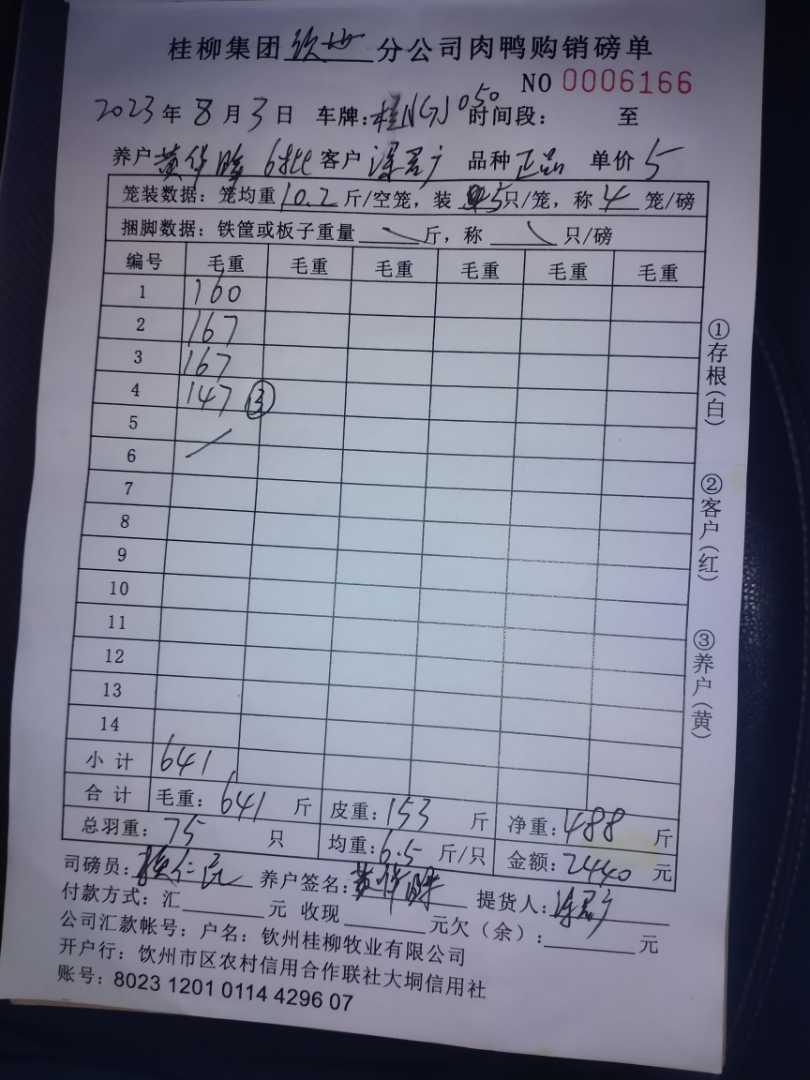 桂柳集团钦州分公司肉鸭购销磅单
NO 0006166
2023年8月3日 车牌:桂N 050 时间段: 至
养户黄华 6批 客户 品种正品 单价5
笼装数据:笼均重10.2斤/空笼,装5只/笼,称4笼/磅
捆脚数据:铁筐或板子重量\斤,称\只/磅
编号 毛重 毛重 毛重 毛重 毛重 毛重
1 160
2 167
3 167
4 147 ③
5
6
7
8
9
10
11
12
13
14
小计 641
合计 毛重:641斤 皮重:153斤 净重:488斤
总羽重:75只 均重:6.5斤/只 金额:2440元
司磅员: 养户签名:黄华 提货人:
付款方式:汇 元 收现 元欠(余): 元
公司汇款帐号:户名:钦州桂柳牧业有限公司
开户行:饮州市区农村信用合作联社大垌信用社
账号:8023 1201 0114 4296 07
①存根(白)
②客户(红)
③养户(黄)